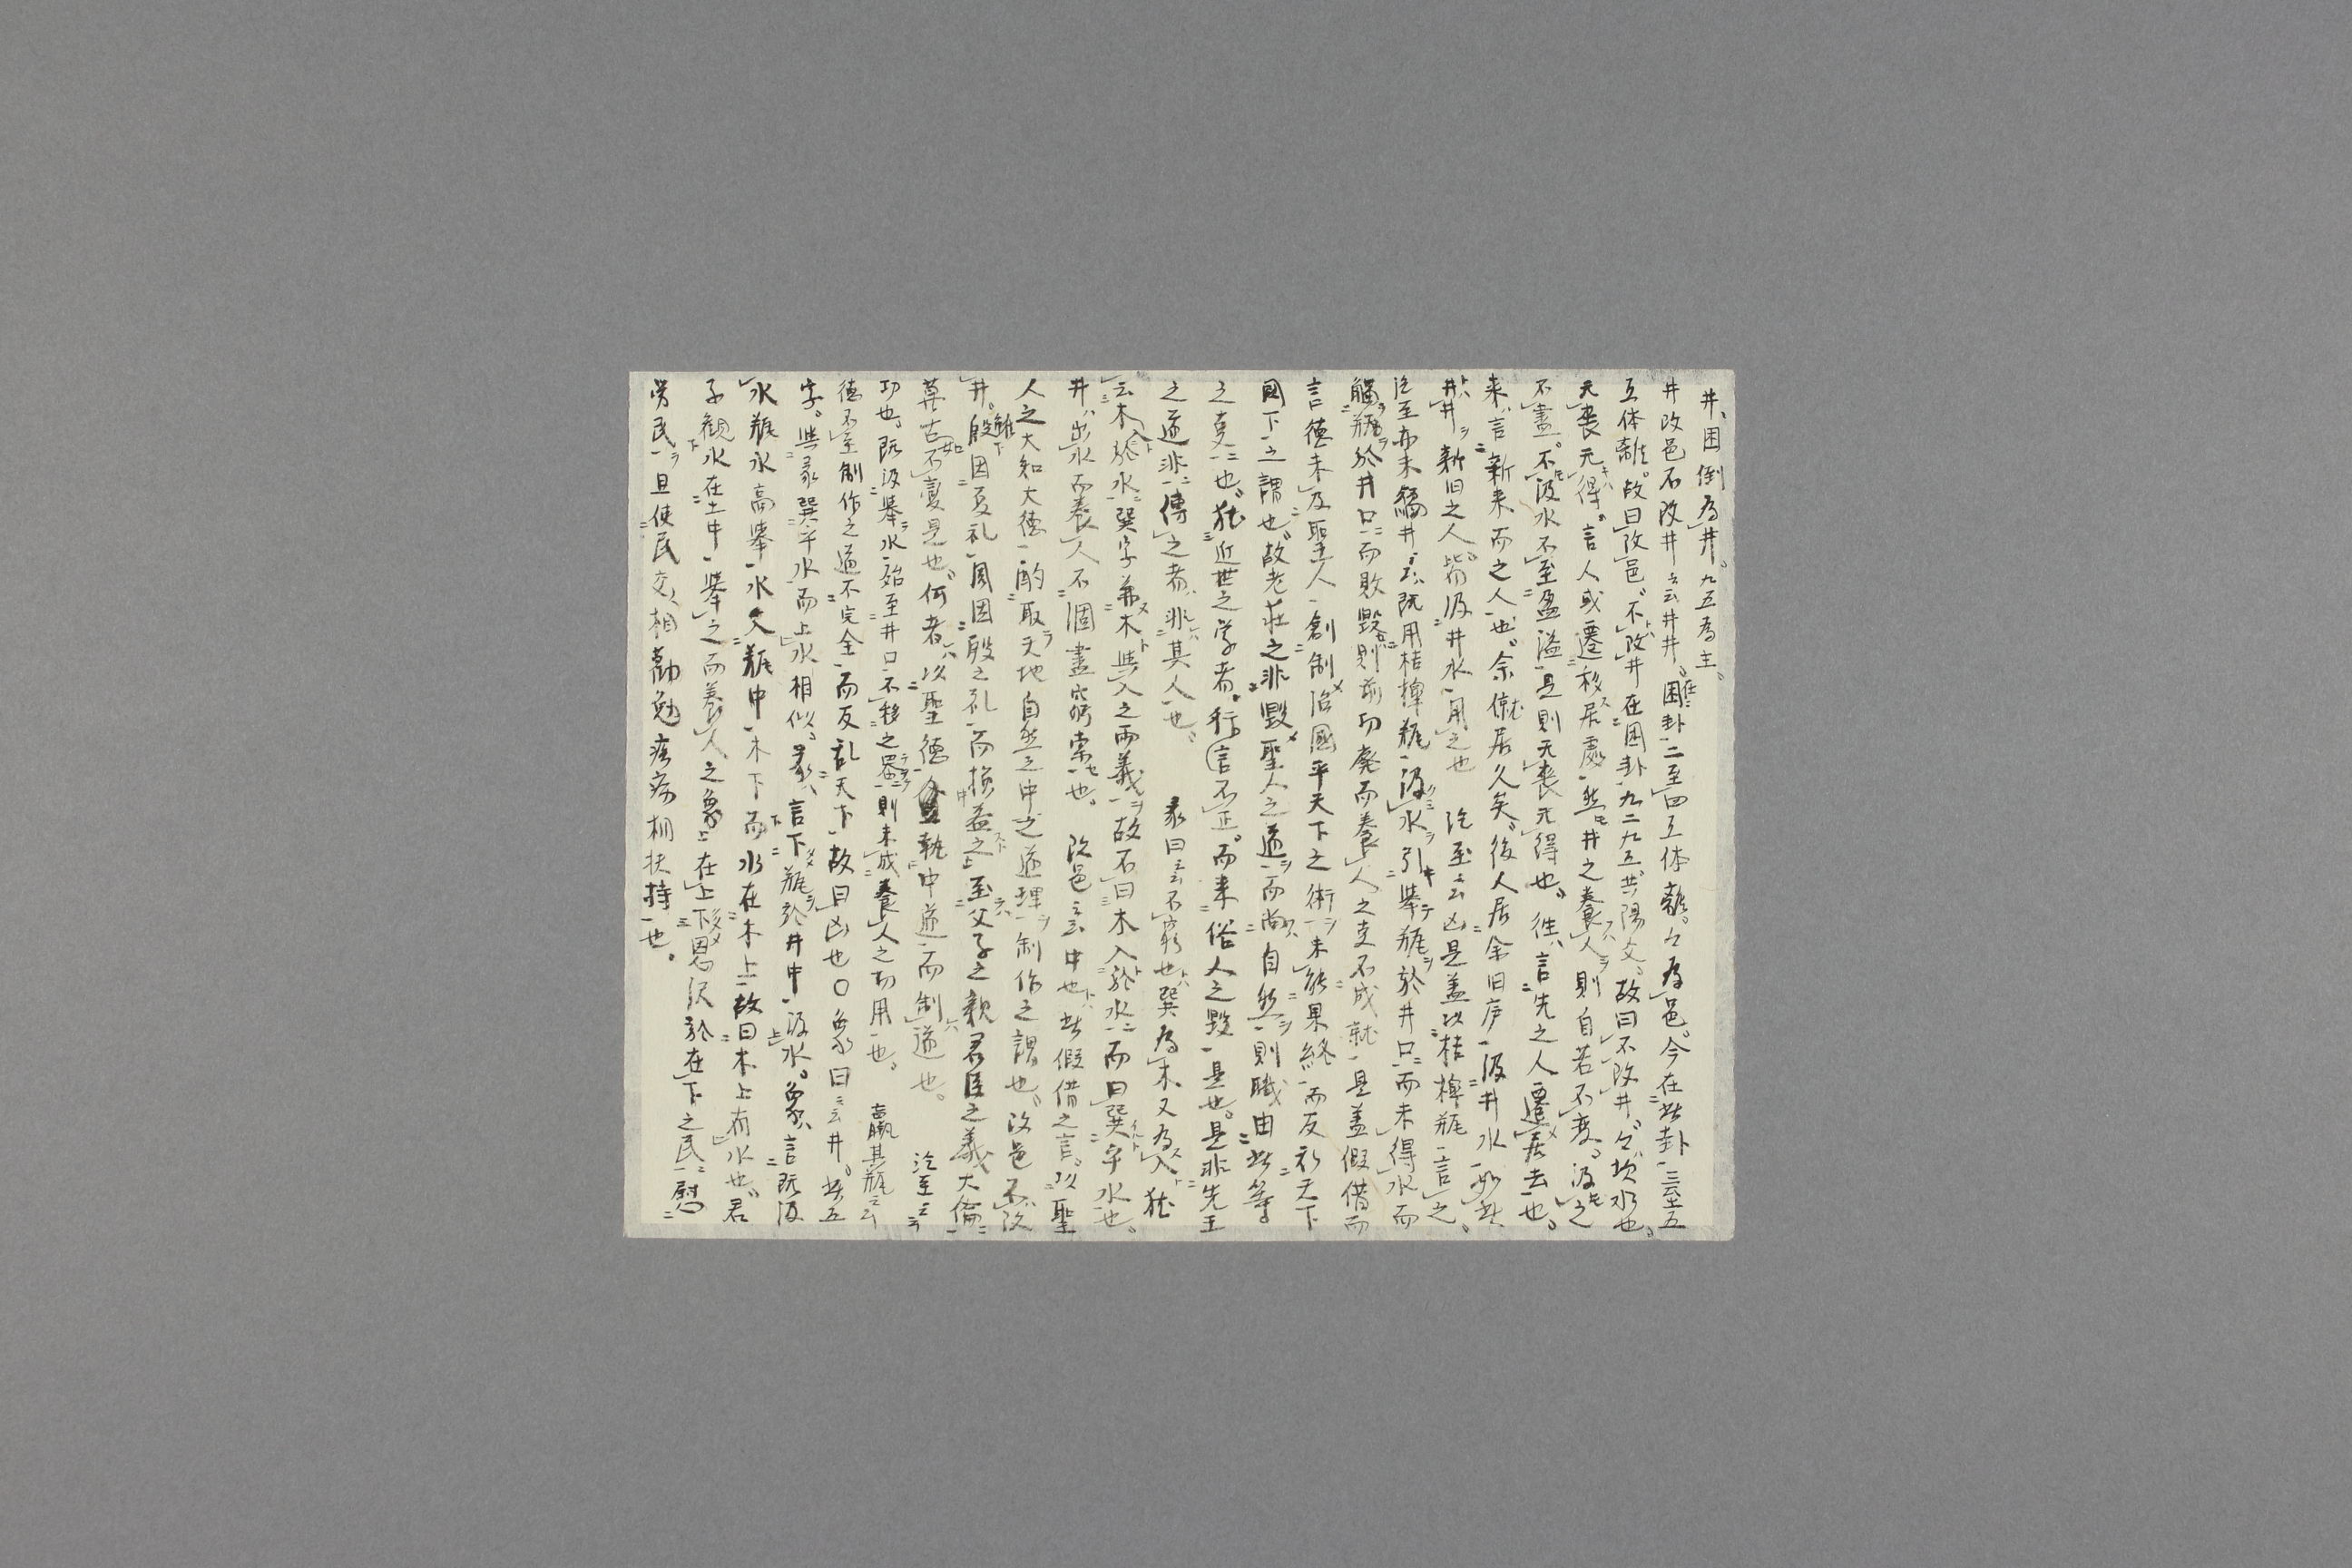 井、困倒為井。九五為主。
井改邑不改井云云井井。困卦二至四互体離。々為邑。今在此卦三至五
互体離。故曰改邑。不改井在困卦九二九五共陽爻。故曰不改井。々坎水也。
无喪无得。言人或遷移居處、然井之養人則自若不変。汲之
不盡。不汲水不至盈溢、是則无喪无得也。往、言先之人遷居去也。
来、言新来而之人也。余僦居久矣。後人居余旧庐汲井水如此
井井新旧之人皆汲井水用之也　汔至云云凶是盖以桔槹瓶言之。
汔至亦未繘井云云、既用桔槹瓶汲水引舉瓶於井口而未得水而
觸瓶於井口而敗毀則前功廃而養人之支不成就是盖假借而
言徳未及聖人創制治國平天下之術未能果終而反乱天下
國下之謂也。故老荘之非毀聖人之道而尚自然則職由此等
之支也。犹近世之学者。行言不正。而来俗人之毀是也。是非先王
之道非傳之者、非其人也。　彖曰云云不窮也巽為木又為入犹
云木於水巽字兼木與入之両義故不曰木入於水而曰巽乎水也。
井、出水而養人不涸盡窮索也。　改邑云云中也此假借之言。以聖
人之大知大徳酌取天地自然之中之道理制作之謂也。改邑不改
井。殷雖因夏礼周因殷之礼而損益之至父子之親君臣之義大倫
莫古不変是也。何者、以聖徳執中道而制道也。　汔至云云
功也。既汲舉水始至井口不移之器則未成養人之功用也。　羸其瓶云云
徳不至制作之道不完全而反乱天下故曰凶也〇象曰云云井。此五
字。與彖巽乎水而上水相似。彖、言下瓶於井中汲水。象、言既汲
水瓶水高舉水久瓶中木下而水在木上故曰木上有水也。君
子觀水在土中舉之而養人之象在上施恩沢於在下之民慰
労民且使民交相勸勉疾病相扶持也。